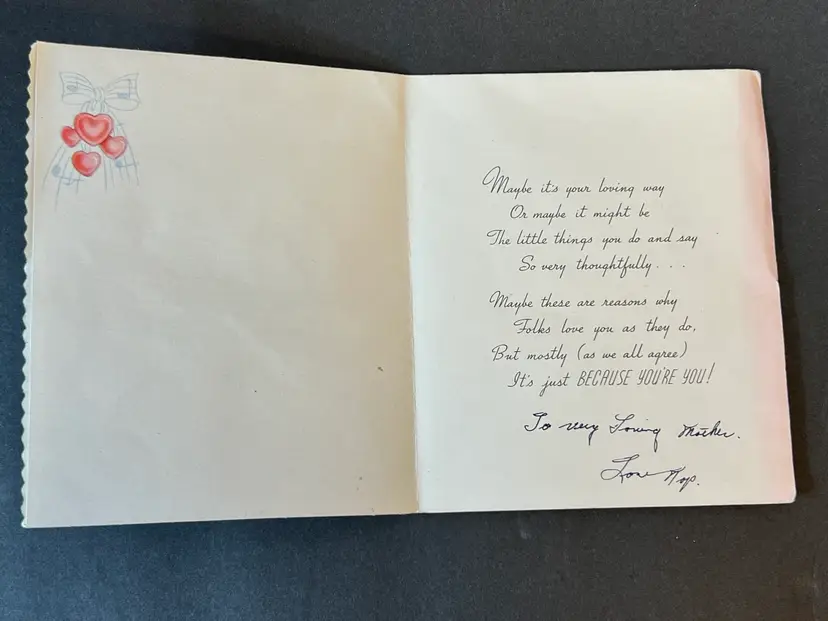 Maybe it's your loving way
Or maybe it might be
The little things you do and say
So very thoughtfully . . .
Maybe these are reasons why
Folks love you as they do,
But mostly (as we all agree)
It's just BECAUSE YOU'RE YOU!
To very Loving Mother.
Love